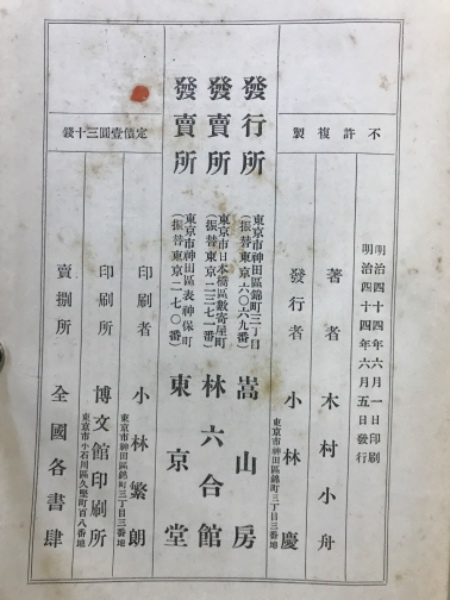 明治四十四年六月一日印刷
明治四十四年六月五日發行
不許複製
著者　木村小舟
發行者　小林慶
東京市神田區錦町三丁目三番地
發行所　東京市神田區錦町三丁目
（振替東京六〇六九番）　嵩山房
發賣所　東京市日本橋區數寄屋町
（振替東京二三七一番）　林六合館
發賣所　東京市神田區表神保町
（振替東京二七〇番）　東京堂
定價壹圓三十錢
印刷者　小林繁朗
東京市神田區錦町三丁目三番地
印刷所　博文館印刷所
東京市小石川區久堅町百八番地
賣捌所　全國各書肆